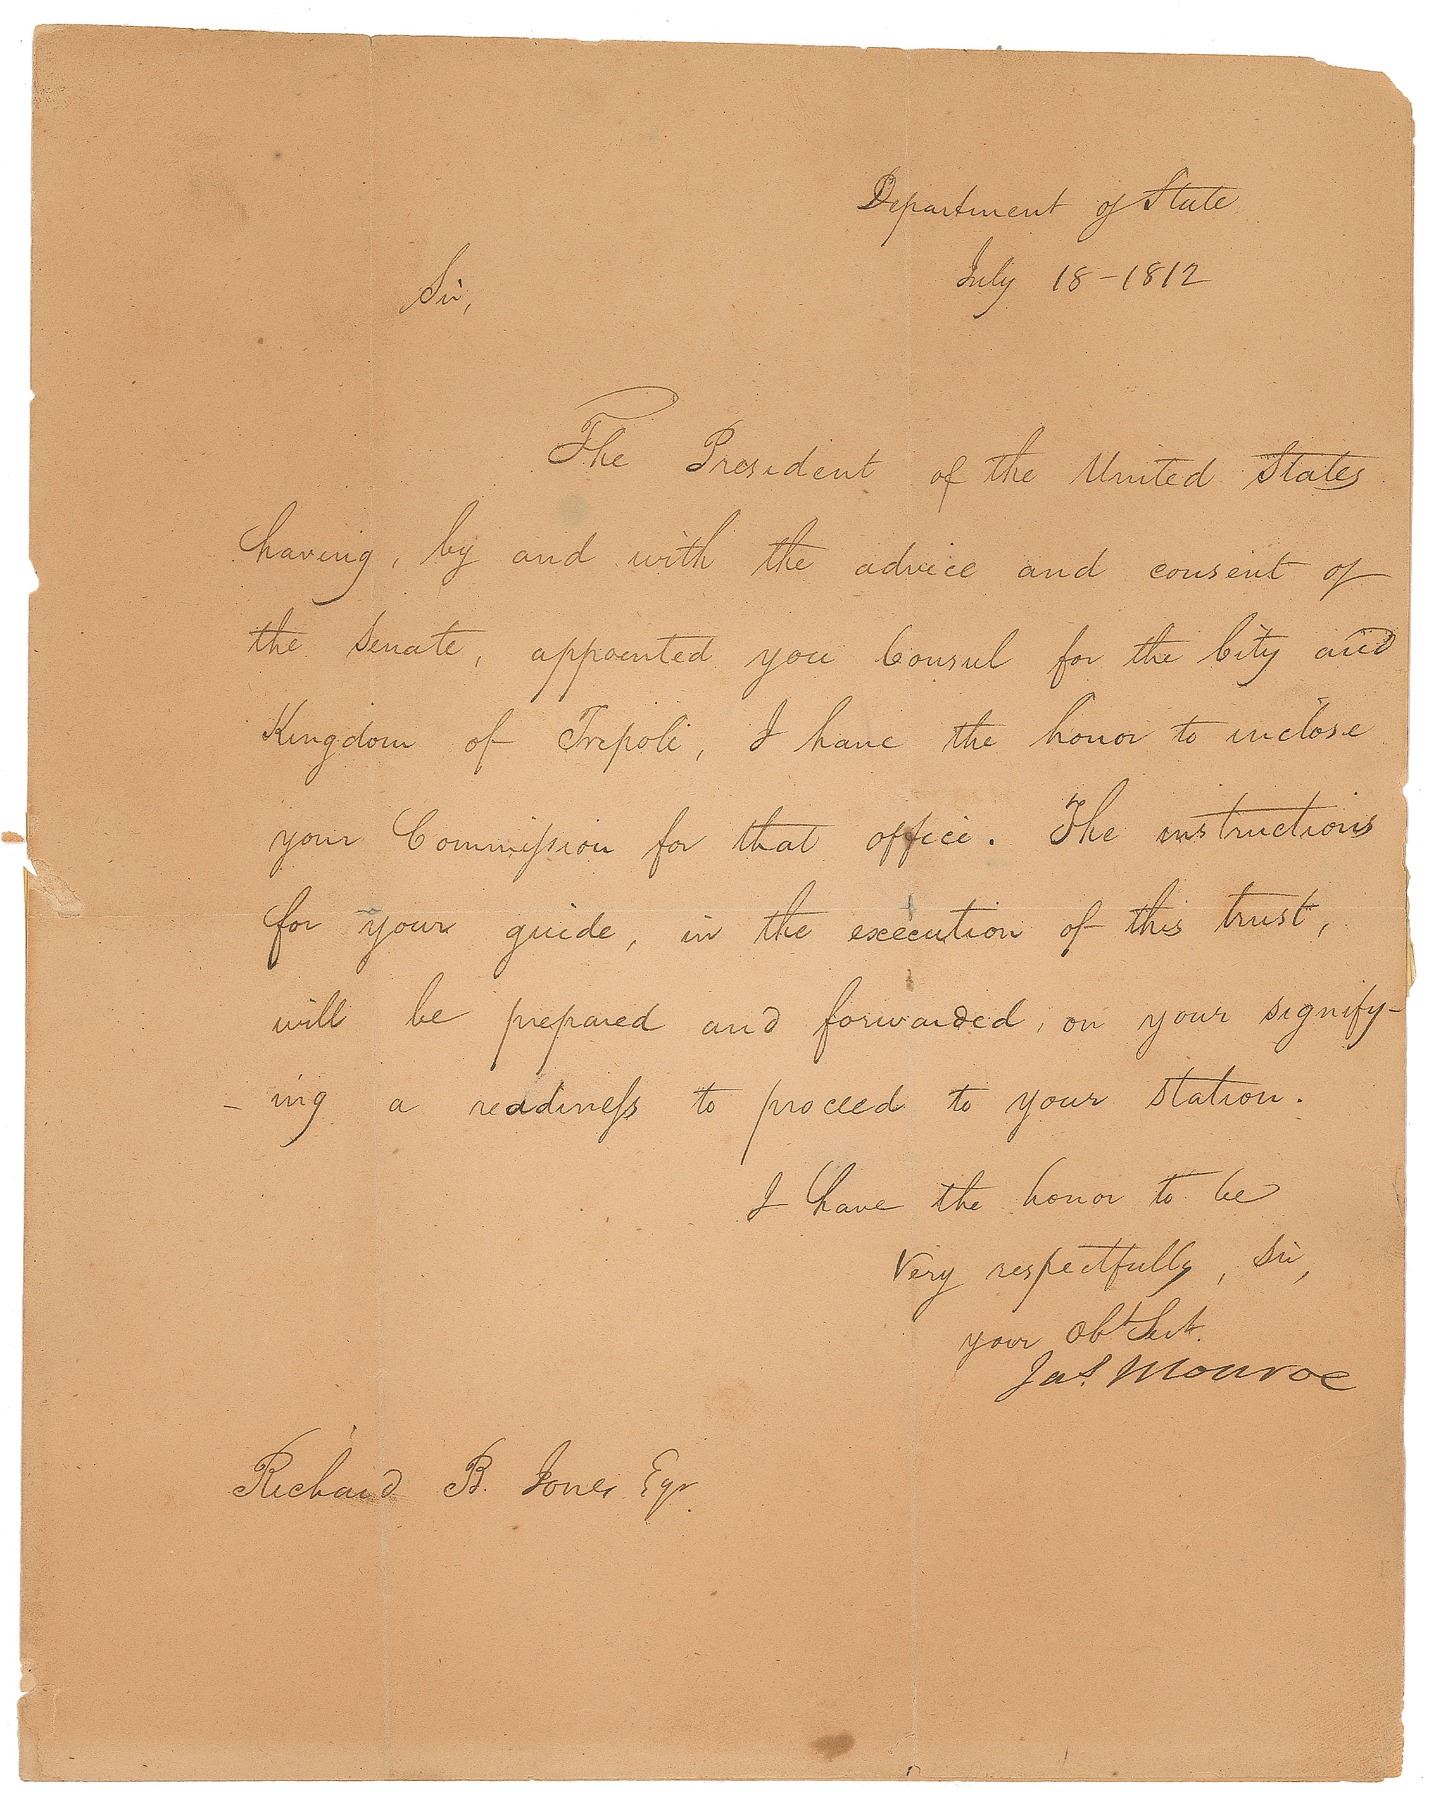 Department of State
July 18-1812
Sir,
The President of the United States
having, by and with the advice and consent of
the Senate, appointed you Consul for the City and
Kingdom of Tripoli, I have the honor to inclose
your Commiſsion for that office. The instructions
for your guide, in the execution of this trust,
will be prepared and forwarded, on your signify-
-ing a readineſs to proceed to your station.
I have the honor to be
Very respectfully, Sir,
your Obt Servt.
Jas. Monroe
Richard B. Jones Esqr.